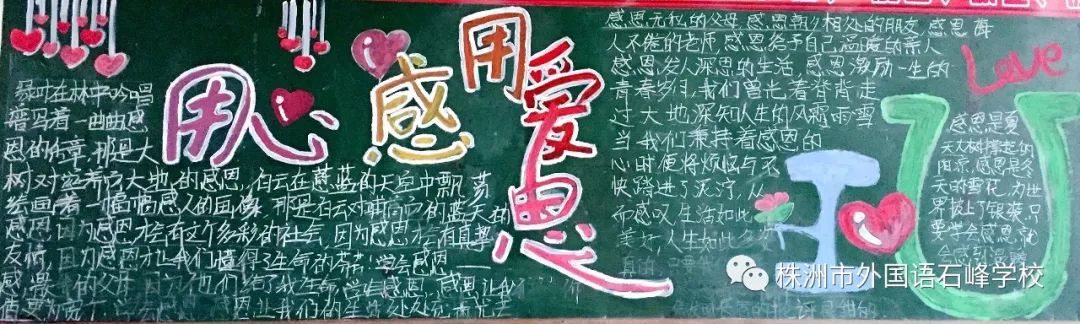 用心感
用爱恩
绿叶在林中吟唱
谱写着一曲曲感
恩的乐章,那是大
树对滋养它大地的感恩,白云在蔚蓝的天空中飘荡
绘画着一幅幅感人的画像,那是白云对哺育它的蓝天的
感恩,因为感恩才会有这个多彩的社会,因为感恩才会有真挚
友情,因为感恩才让我们懂得了生命的 学会感恩
他们给了我生命,学会感恩,感恩让我
让我们的生活处处充满
感恩无私的父母,感恩 相处的朋友,感恩诲
人不倦的老师,感恩给予自己温暖的亲人
感恩发人深思的生活,感恩激励一生的
青春岁月,我们曾光着脊背走
过大地深知人生的风霜雨雪
当我们秉持着感恩的
心时便将烦恼与不
快踏进了泥泞,从
而感叹生活如此
美好,人生如此多
Love
I
U
感恩是夏
天大树撑起的
阴凉,感恩是冬
天的雪花,为世
界披上了银装,只
要学会感恩,就
会感到温暖
株洲市外国语石峰学校